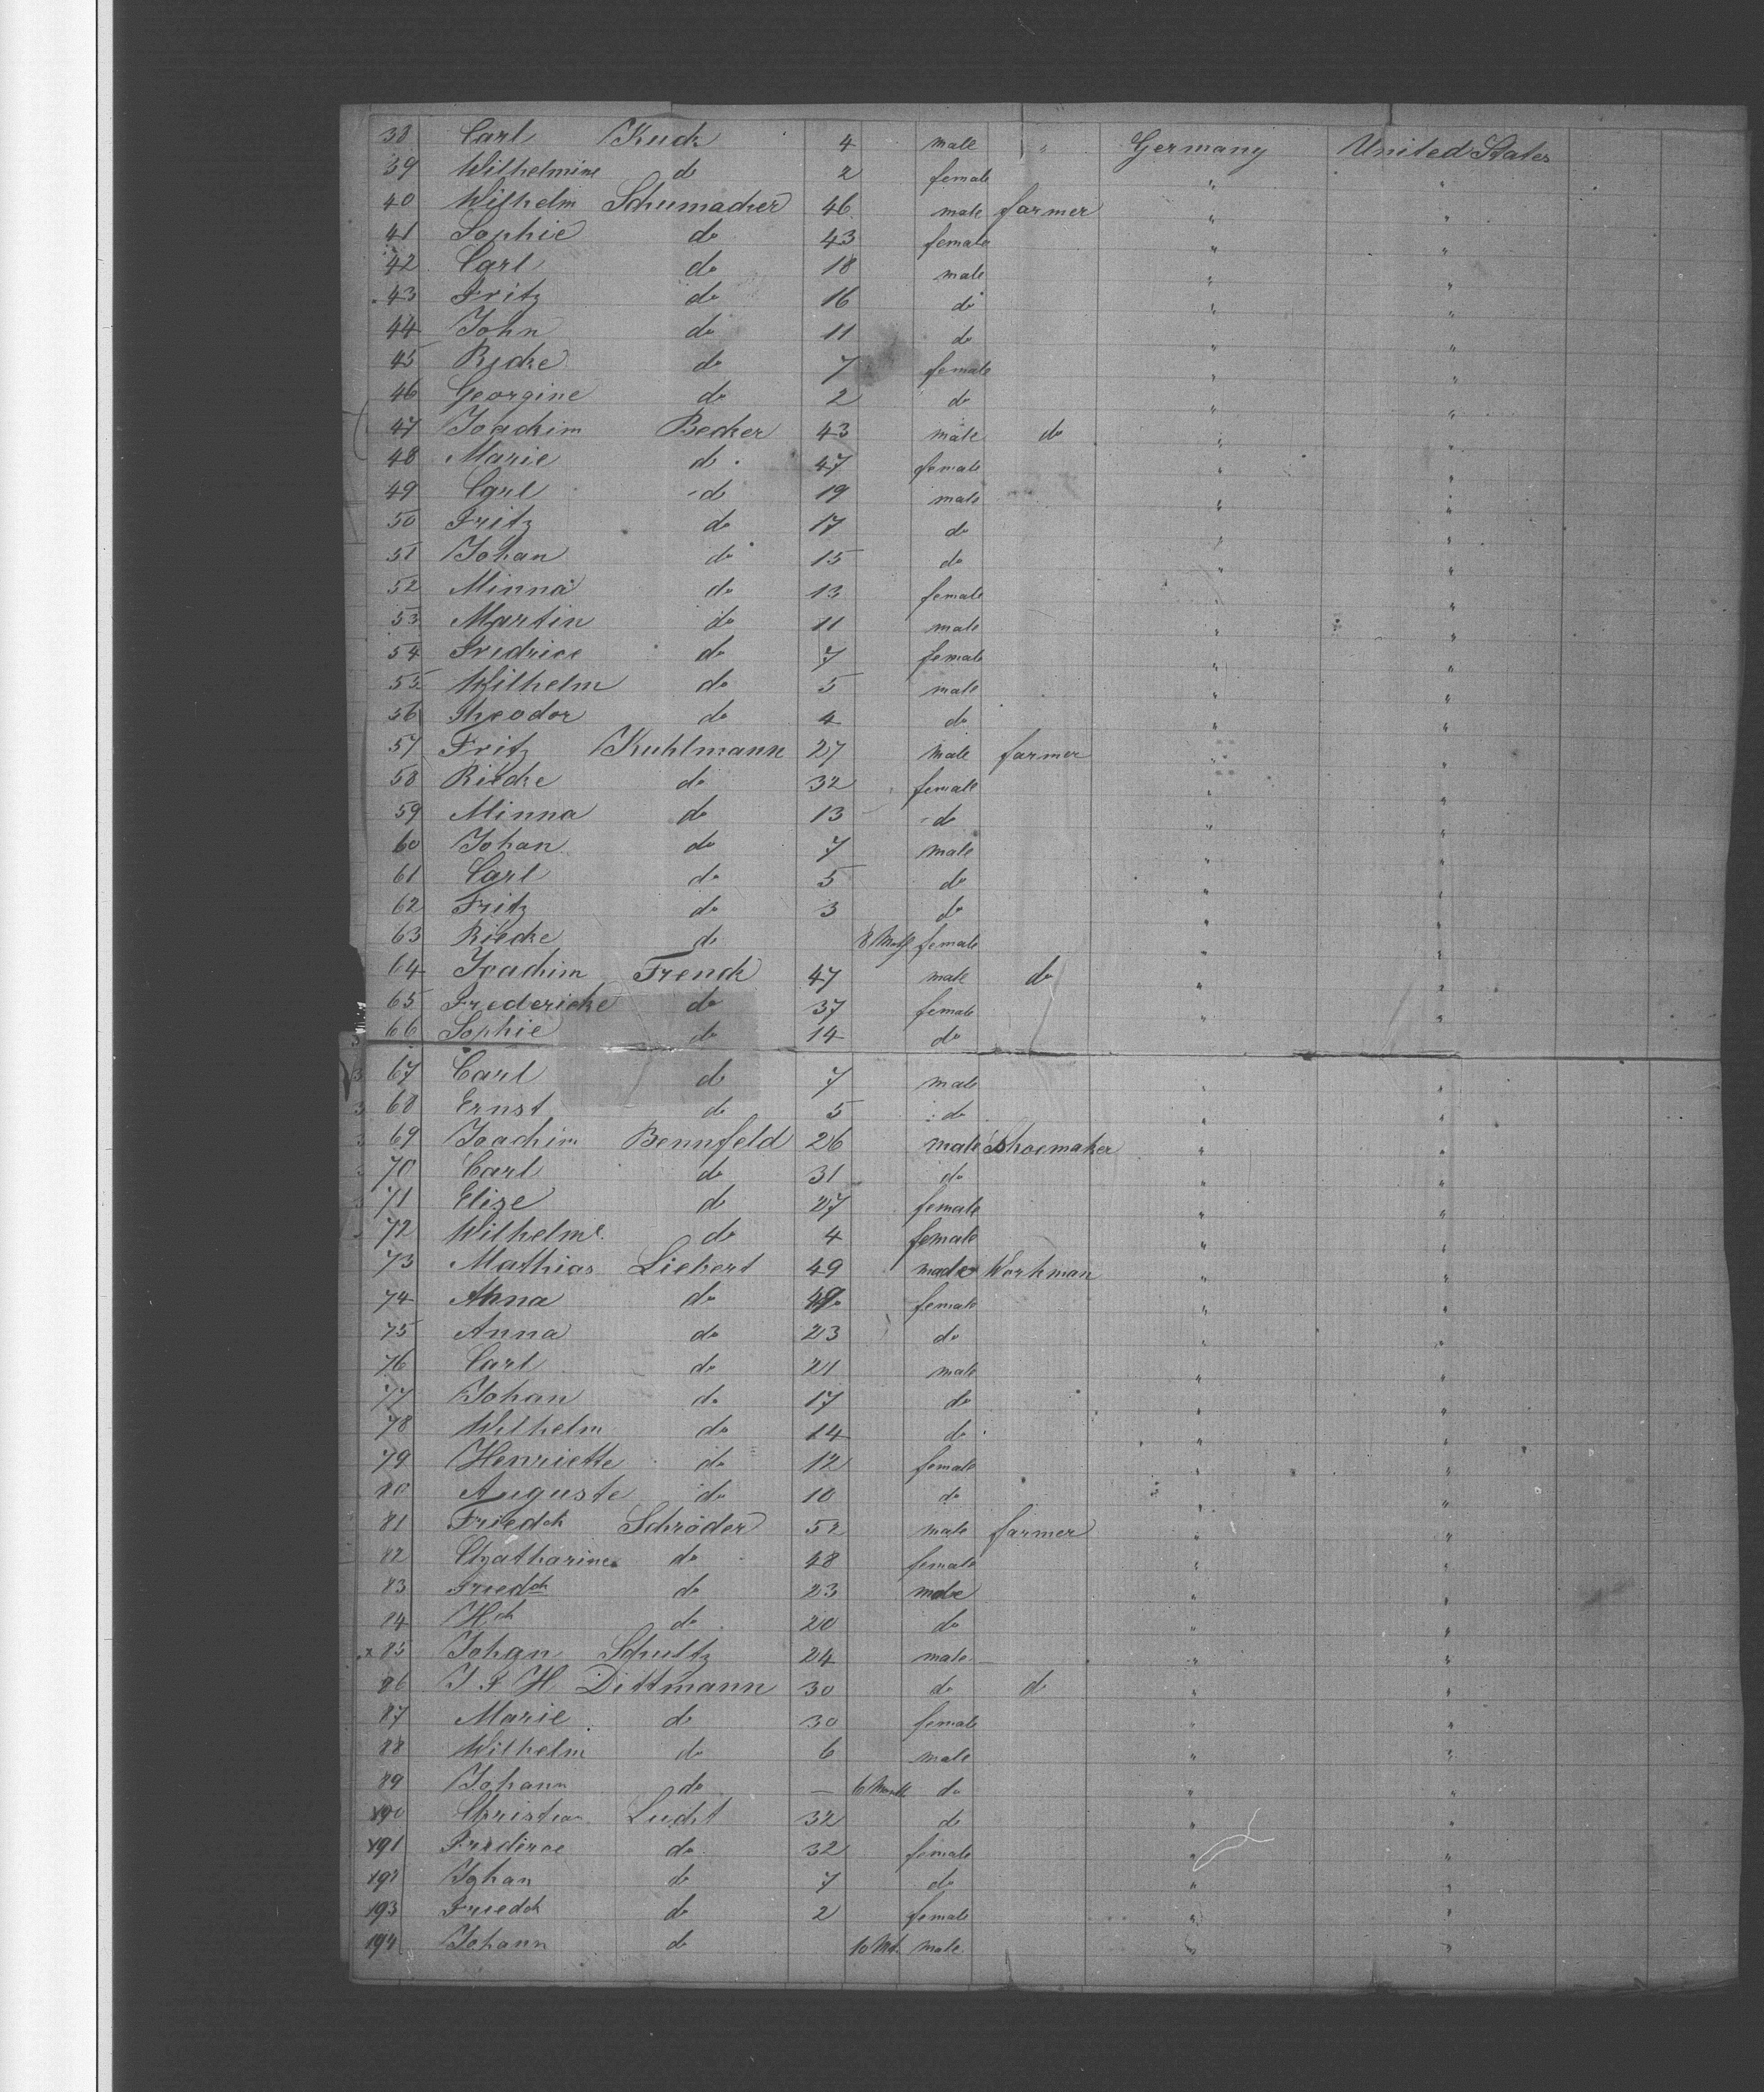 38 Carl Kuck 4 male " Germany United States
39 Wilhelmine do 2 female " "
40 Wilhelm Schumacker 46 male farmer " "
41 Sophie do 43 female " "
42 Carl do 18 male " "
43 Fritz do 16 do " "
44 John do 11 do " "
45 Riecke do 7 female " "
46 Georgine do 2 do " "
47 Joackim Becker 43 male do " "
48 Marie do 47 female " "
49 Carl do 19 male " "
50 Fritz do 17 do " "
51 Johan do 15 do " "
52 Minna do 13 female " "
53 Martin do 11 male " "
54 Fredrice do 7 female " "
55 Wilhelm do 5 male " "
56 Theodor do 4 do " "
57 Fritz Kuhlmann 27 male farmer " "
58 Riecke do 32 female " "
59 Minna do 13 do " "
60 Johan do 7 male " "
61 Carl do 5 do " "
62 Fritz do 3 do " "
63 Riecke do 8 female " "
64 Joachim Frenck 47 male do " "
65 Fredericke do 37 female " "
66 Sophie do 14 do
67 Carl do 7 male " "
68 Ernst do 5 do " "
69 Joachim Bennfeld 26 male Shoemaker " "
70 Carl do 31 do " "
71 Elise do 27 female " "
72 Wilhelme do 4 female " "
73 Mathias Liebert 49 male Workman " "
74 Anna do female " "
75 Anna do 23 do " "
76 Carl do 21 male " "
77 Johan do 17 do " "
78 Wilhelm do 14 do " "
79 Henriette do 12 female " "
80 Auguste do 10 do " "
81 Friedch Schröder 52 male farmer " "
82 Catharine do 48 female " "
83 Friedch do 23 male " "
84 Hch do 20 do " "
x 85 Johan Schultz 24 male " "
86 J F H Dittmann 30 do do " "
87 Marie do 30 female " "
88 Wilhelm do 6 male " "
89 Johann do — 6 Month do " "
190 Christian Lucht 32 do " "
191 Frederice do 32 female " "
192 Johan do 7 do " "
193 Friedch do 2 female " "
194 Johann do 10 Mt. male " "